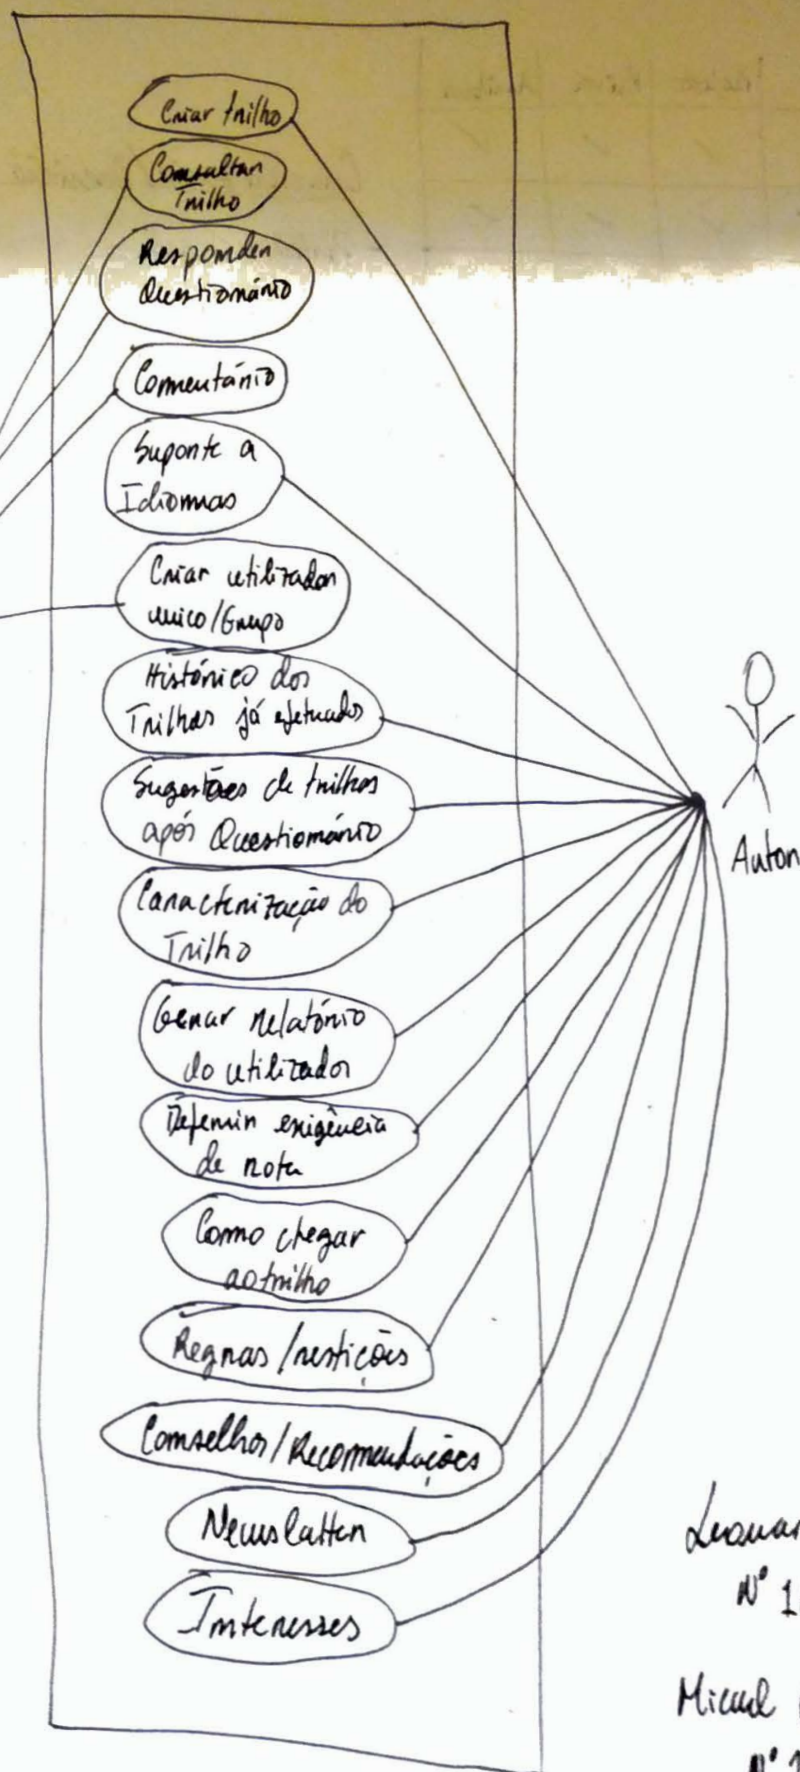 Criar trilho
Consultar
Trilho
Responder
Questionário
Comentário
Suporte a
Idiomas
Criar utilizador
unico/Grupo
Histórico dos
Trilhos já efetuados
Sugestões de trilhos
após Questionário
Caracterização do
Trilho
Gerar relatório
do utilizador
Definir exigência
de nota
Como chegar
ao trilho
Regras/restições
Conselhos/Recomendações
Newslatter
Interesses
Autor
Leonar
Nº 1
Nº